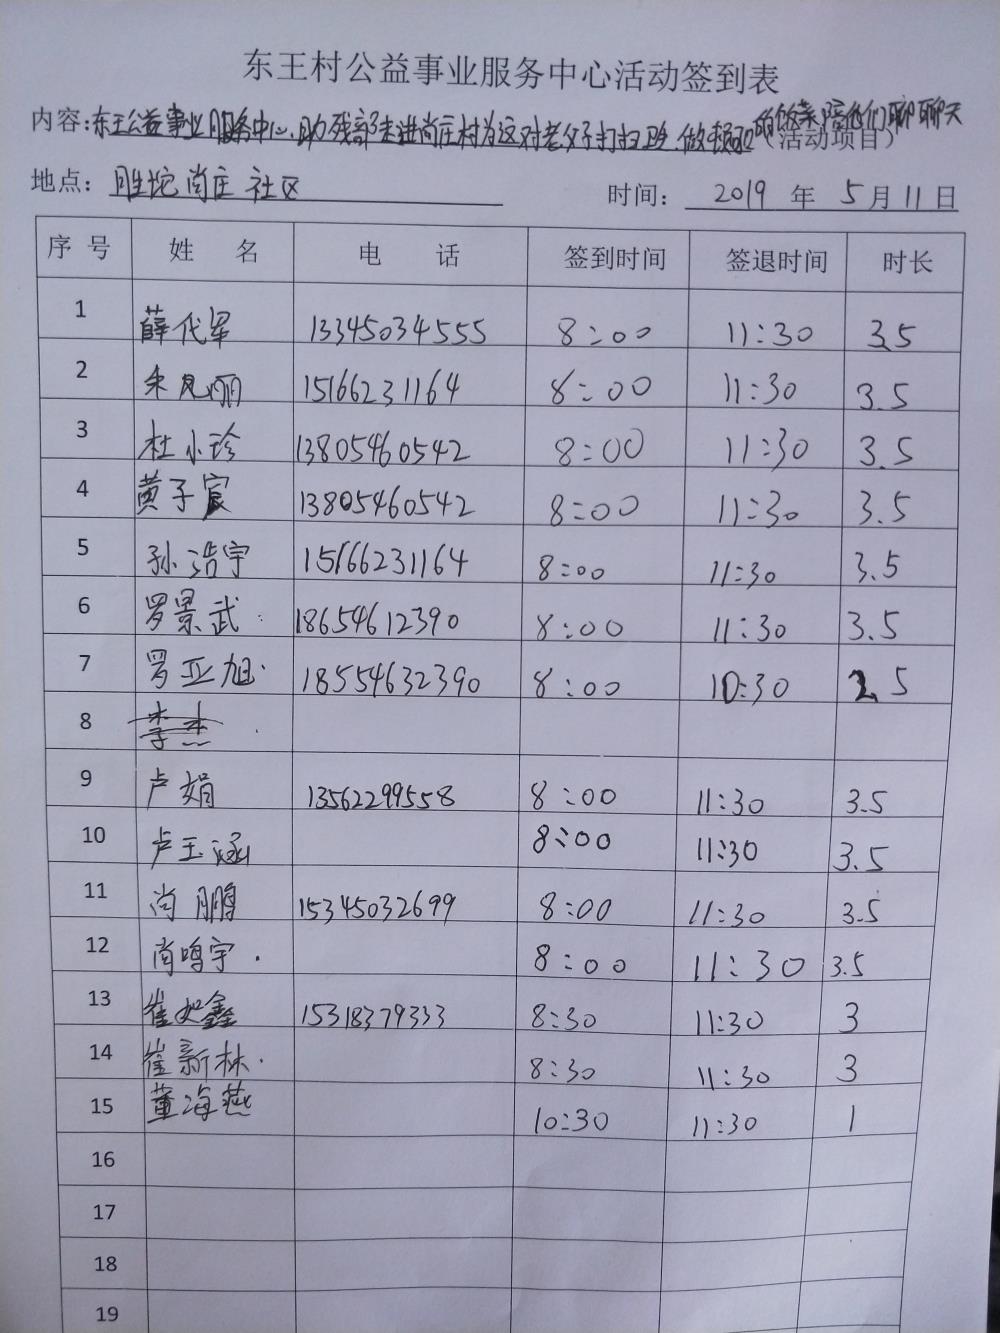 东王村公益事业服务中心活动签到表
内容:东王公益事业服务中心.助残部走进尚庄村为这对老父子打扫卫生 做顿可的饭菜陪他们聊聊天(活动项目)
地点:胜坨尚庄社区 时间: 2019 年 5月11日
序号 姓名 电话 签到时间 签退时间 时长
1 薛代军 13345034555 8:00 11:30 3.5
2 朱见丽 15166231164 8:00 11:30 3.5
3 杜小珍 13805460542 8:00 11:30 3.5
4 黄子宸 13805460542 8:00 11:30 3.5
5 孙浩宇 15166231164 8:00 11:30 3.5
6 罗景武 18654612390 8:00 11:30 3.5
7 罗亚旭 18554632390 8:00 10:30 2.5
8 李杰
9 卢娟 13562299558 8:00 11:30 3.5
10 卢玉涵 8:00 11:30 3.5
11 尚鹏 15345032699 8:00 11:30 3.5
12 尚鸣宇 8:00 11:30 3.5
13 崔如鑫 15318379333 8:30 11:30 3
14 崔新林 8:30 11:30 3
15 董海燕 10:30 11:30 1
16
17
18
19